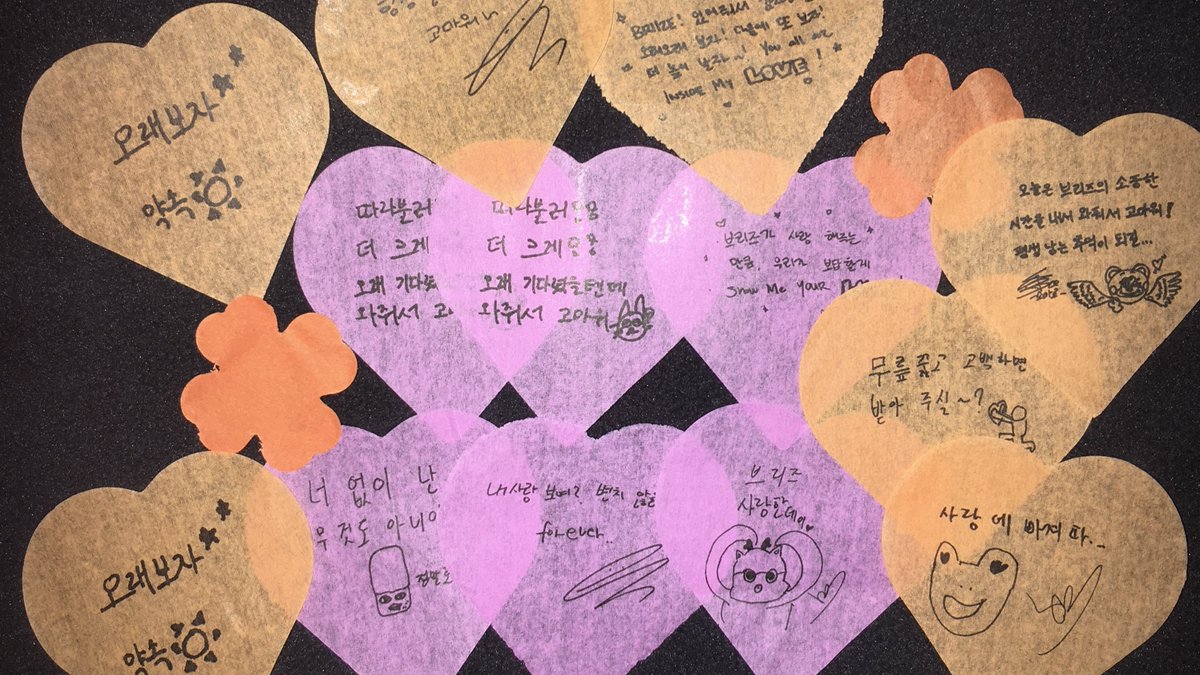 오래보자
약속
고마워
BRIIZE! 와줘서
오래오래 보자! 다음에 또 보자!
더 놀러 보자~! You all are
INSIDE My LOVE!
따라불러
더 크게
오래 기다렸
와줘서 고
따라불러용용
더 크게용용
오래 기다렸을텐데
와줘서 고마워
브리즈가 사랑 해주는
만큼, 우리도 보답할게
Show Me Your
오늘은 브리즈의 소중한
시간을 내서 와줘서 고마워!
평생 남는 추억이 되길...
무릎 꿇고 고백하면
받아 주실~?
너 없이 난
무것도 아니야
정말로
내사랑 보여? 변치 않을
forever..
브리즈
사랑한데이
사랑에 빠져따..
오래보자
약속